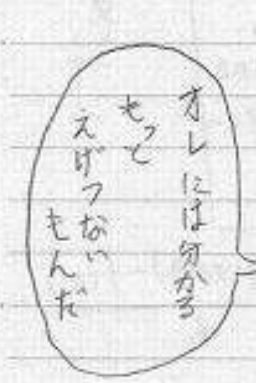 オレには分かる
もっと
えげつない
もんだ